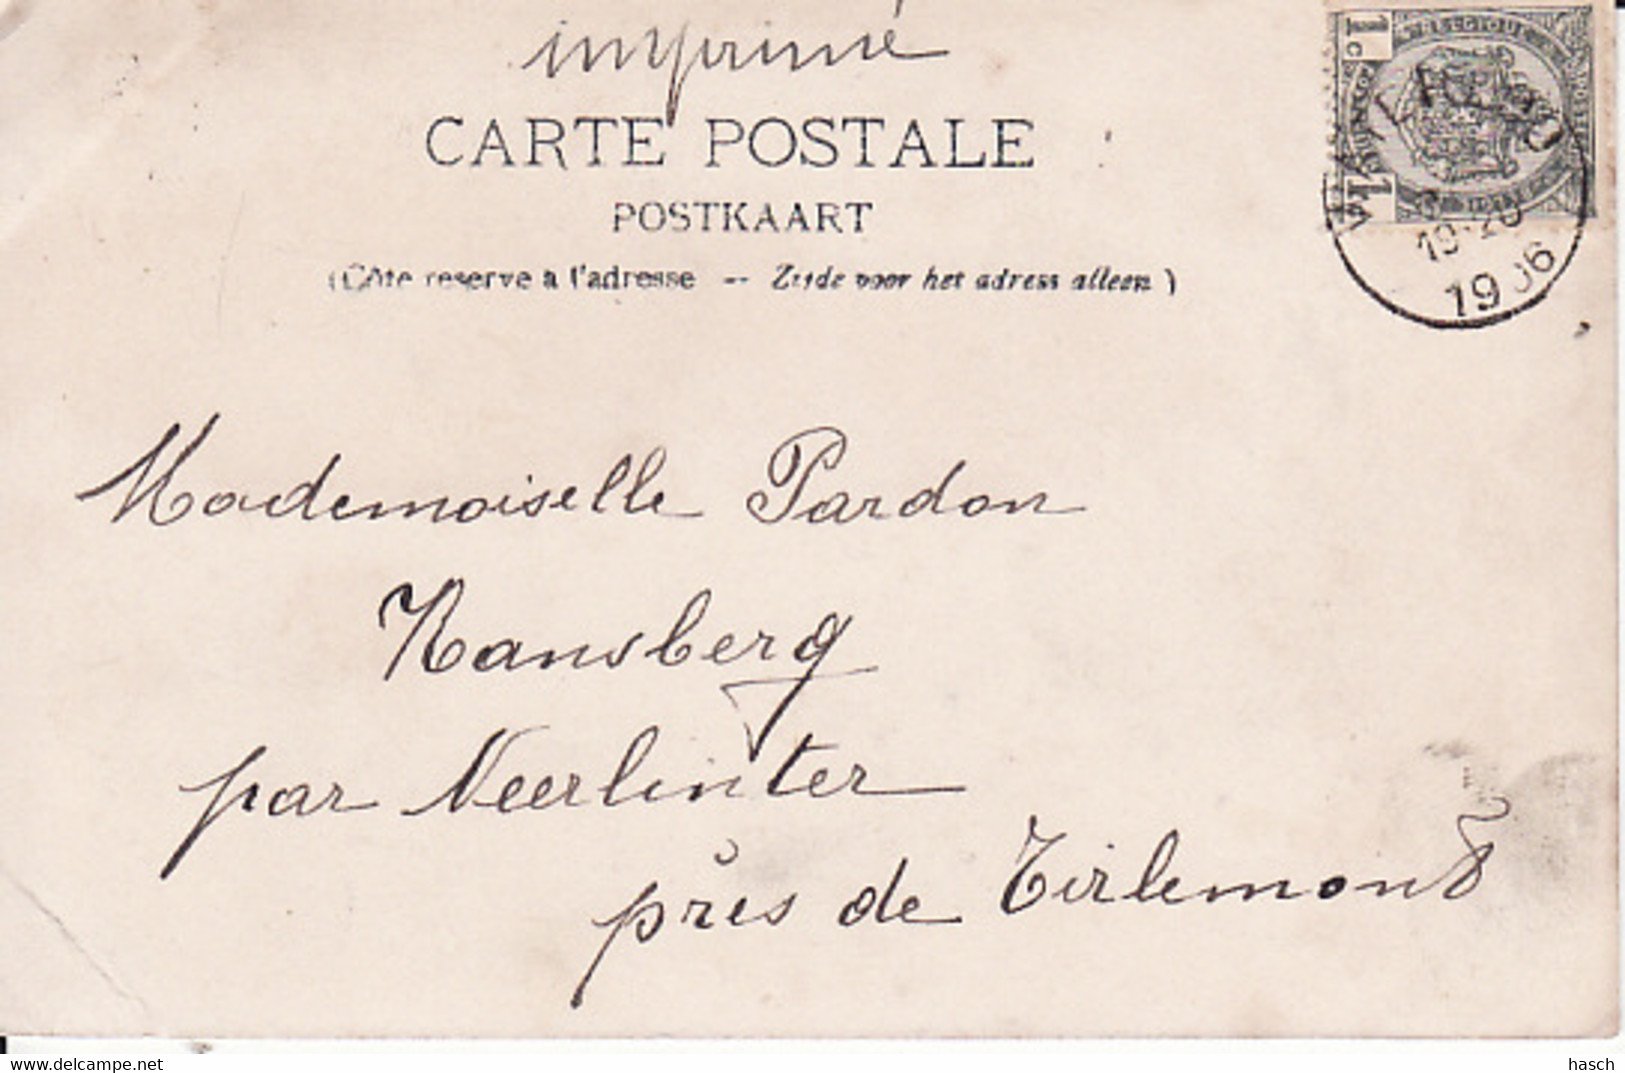 imprimé
CARTE POSTALE
POSTKAART
(Côté reserve a l'adresse -- Zijde voor het adress alleen)
1c
1
19-20
1906
Mademoiselle Pardon
Ransberg
par Neerlinter
près de Tirlemont
www.delcampe.net
hasch